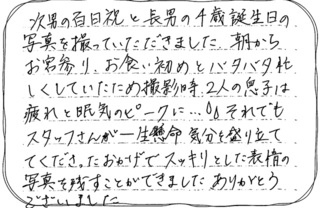 次男の百日祝と長男の4歳誕生日の
写真を撮っていただきました。朝から
お宮参り、お食い初めとバタバタ忙
しくしていたため撮影時、2人の息子は
疲れと眠気のピークに…。それでも
スタッフさんが一生懸命気分を盛り立て
てくださったおかげでスッキリとした表情の
写真を残すことができました ありがとう
ございました